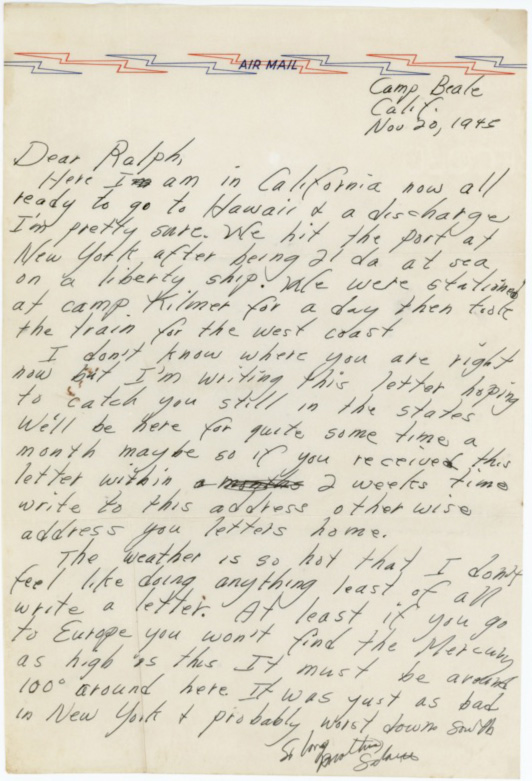 AIR MAIL
Camp Beale
Calif.
Nov 20, 1945
Dear Ralph,
Here I'm am in California now all
ready to go to Hawaii & a discharge
I'm pretty sure. We hit the port at
New York after being 21 da at sea
on a liberty ship. We were stationed
at camp Kilmer for a day then took
the train for the west coast
I don't know where you are right
now but I'm writing this letter hoping
to catch you still in the states
We'll be here for quite some time a
month maybe so if you received this
letter within a months 2 weeks time
write to this address other wise
address you letters home.
The weather is so hot that I don't
feel like doing anything least of all
write a letter. At least if you go
to Europe you won't find the Mercury
as high as this It must be around
100° around here It was just as bad
in New York & probably worst down south
So long